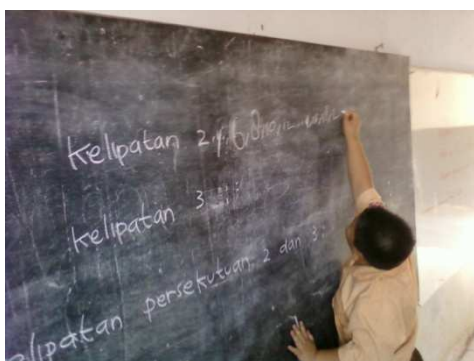 Kelipatan 2
Kelipatan 3 :
kelipatan persekutuan 2 dan 3 :